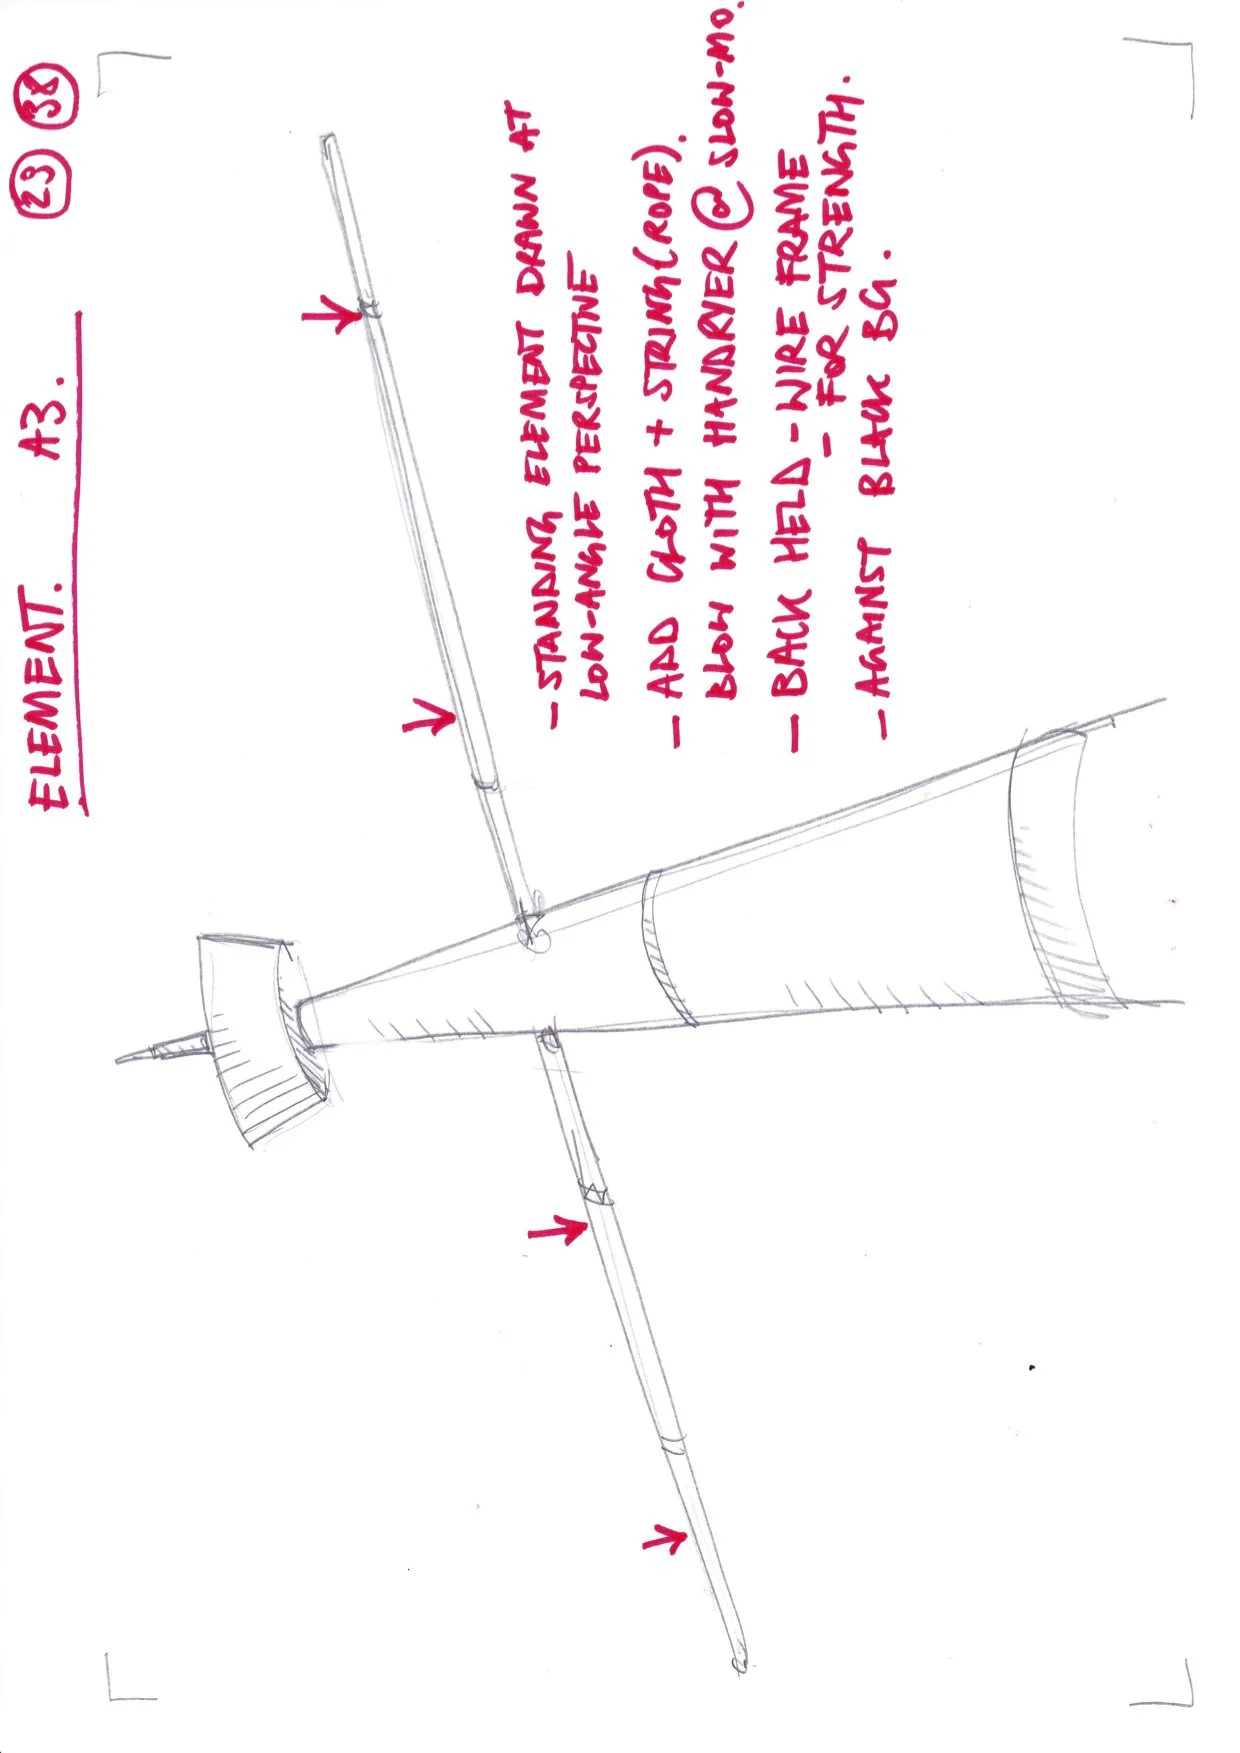 ELEMENT. A3. 29 38
- STANDING ELEMENT DRAWN AT
LOW-ANGLE PERSPECTIVE
- ADD CLOTH + STRING (ROPE).
BLOW WITH HANDRYER @ SLOW-MO.
- BACK HELD - WIRE FRAME
- FOR STRENGTH.
- AGAINST BLACK BG.